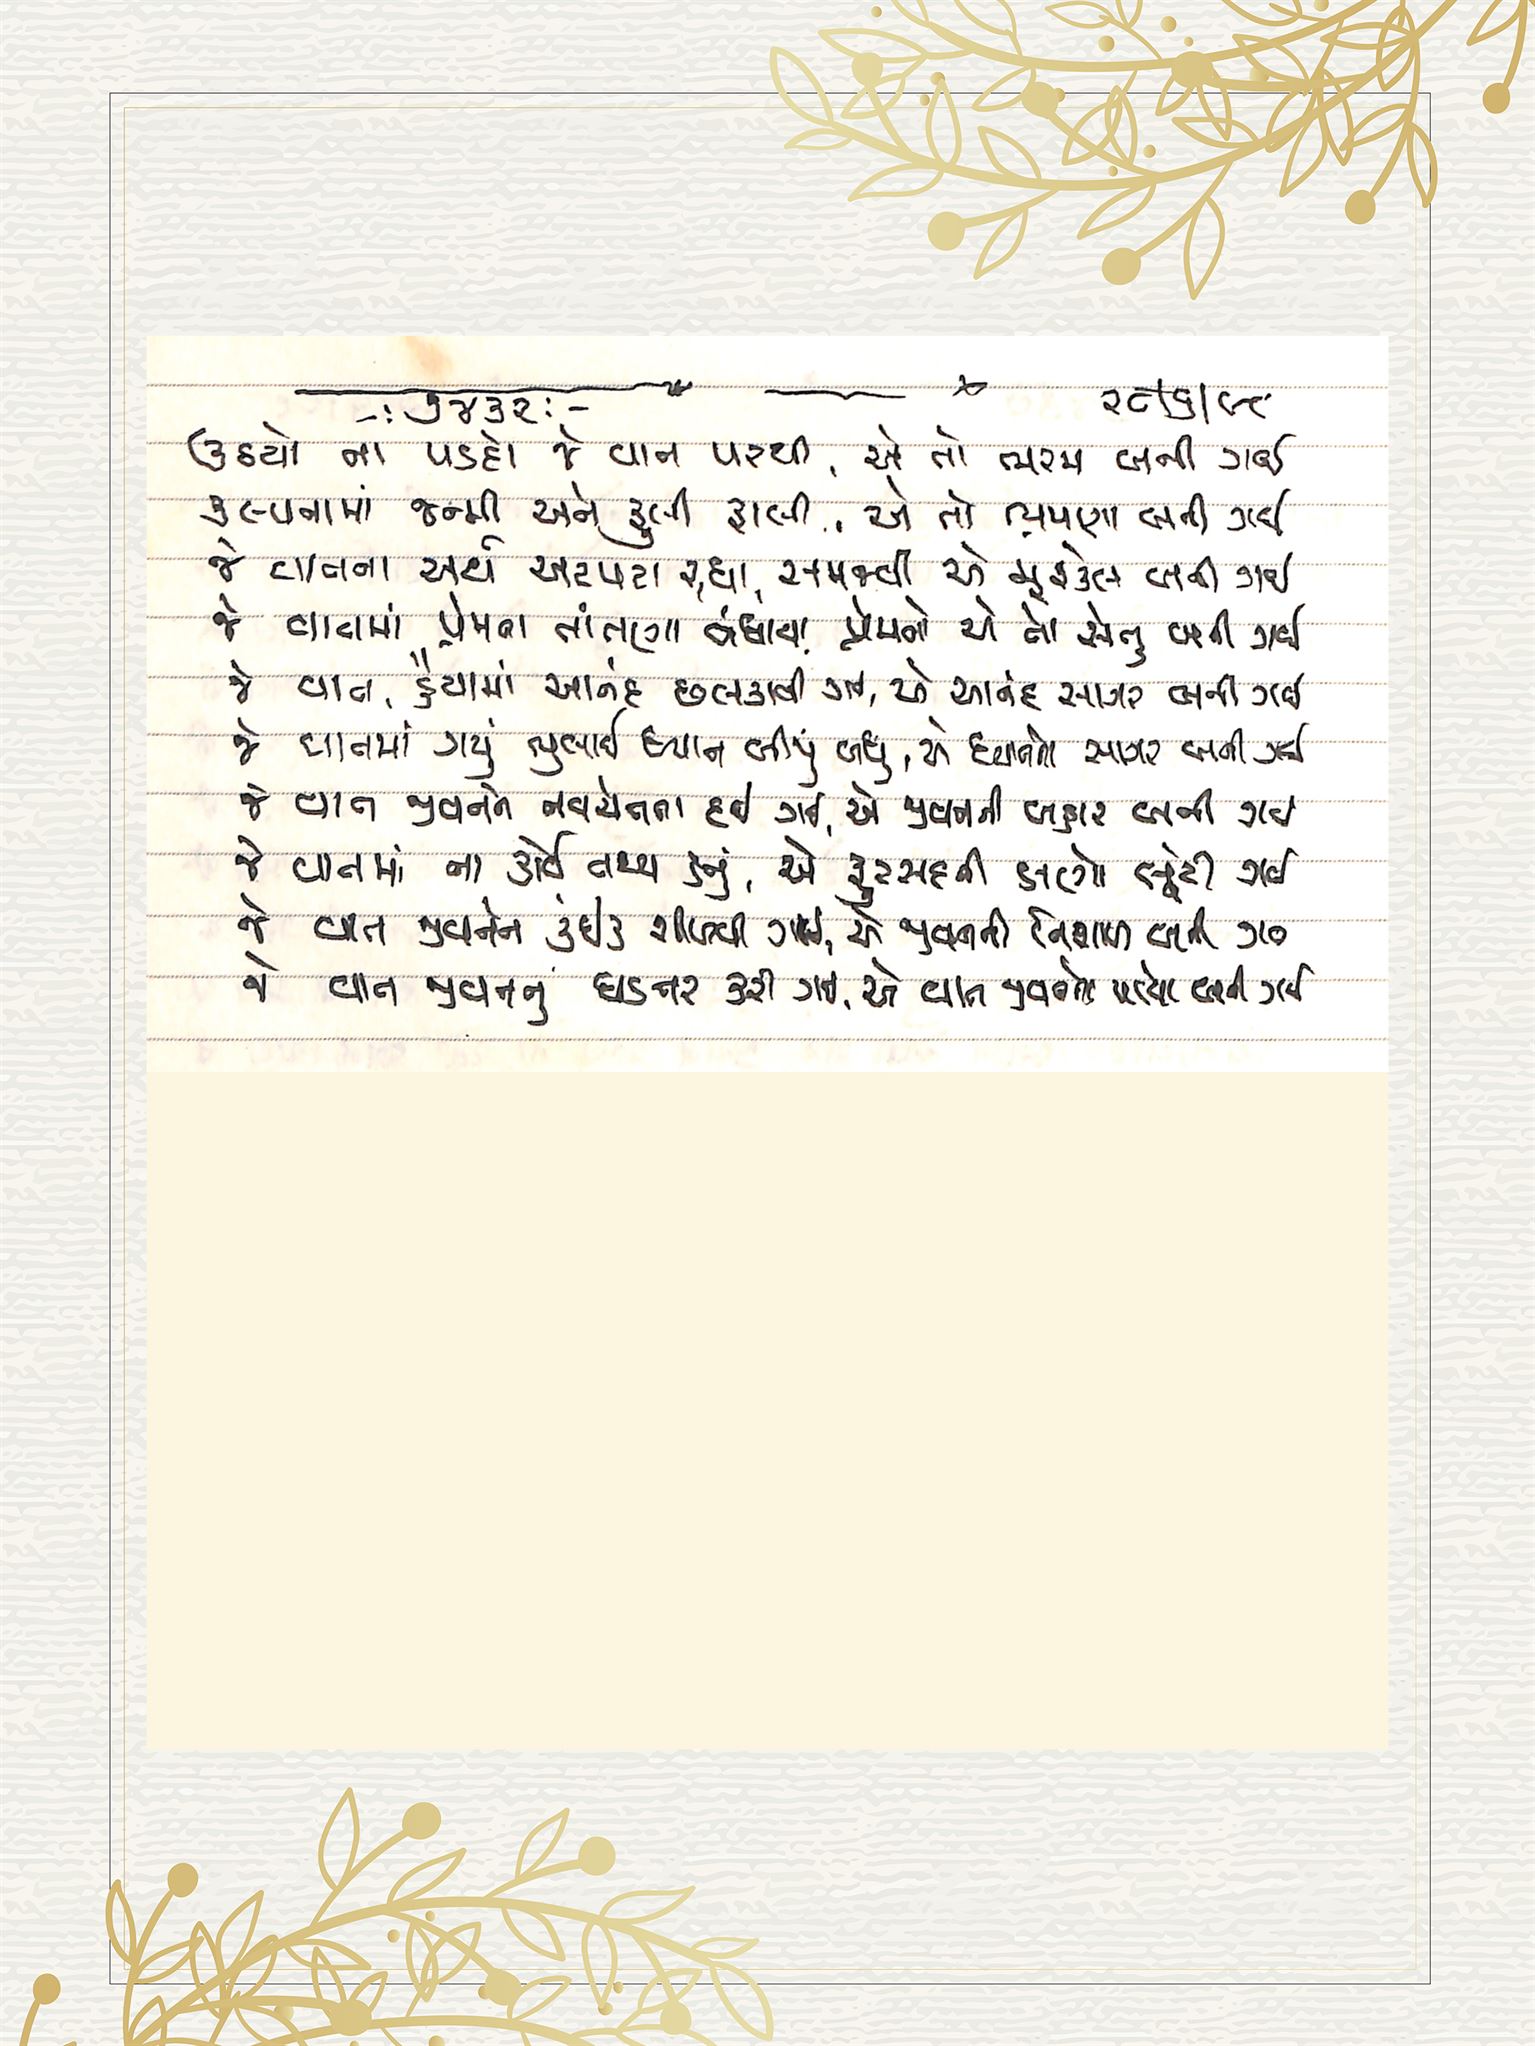 ઉઠયો ના પડદો જે વાત પરથી, એ તો ભરમ બની ગઈ
કલ્પનામાં જન્મી અને ફુલી ફાલી, એ તો ભ્રમણા બની ગઈ
જે વાતના અર્થ અટપટા રહ્યા, સમજવી એ મુશ્કેલ બની ગઈ
જે વાતમાં પ્રેમના તાંતણા બંધાયા પ્રેમનો એ તો સેતુ બની ગઈ
જે વાત, હૈયામાં આનંદ છલકાવી ગઈ, એ આનંદ સાગર બની ગઈ
જે વાતમાં ગયું ભુલાઈ ધ્યાન બીજું બધું, એ ધ્યાનનો સાગર બની ગઈ
જે વાત જીવનને નવચેતના દઈ ગઈ, એ જીવનની બહાર બની ગઈ
જે વાતમાં ના કોઈ તથ્ય હતું, એ ફુરસદની ક્ષણો લૂંટી ગઈ
જે વાત જીવનને કંઈક શીખવી ગઈ, એ જીવનની નિશાળ બની ગઈ
જે વાત જીવનનું ઘડતર કરી ગઈ, એ વાત જીવનનો બની ગઈ